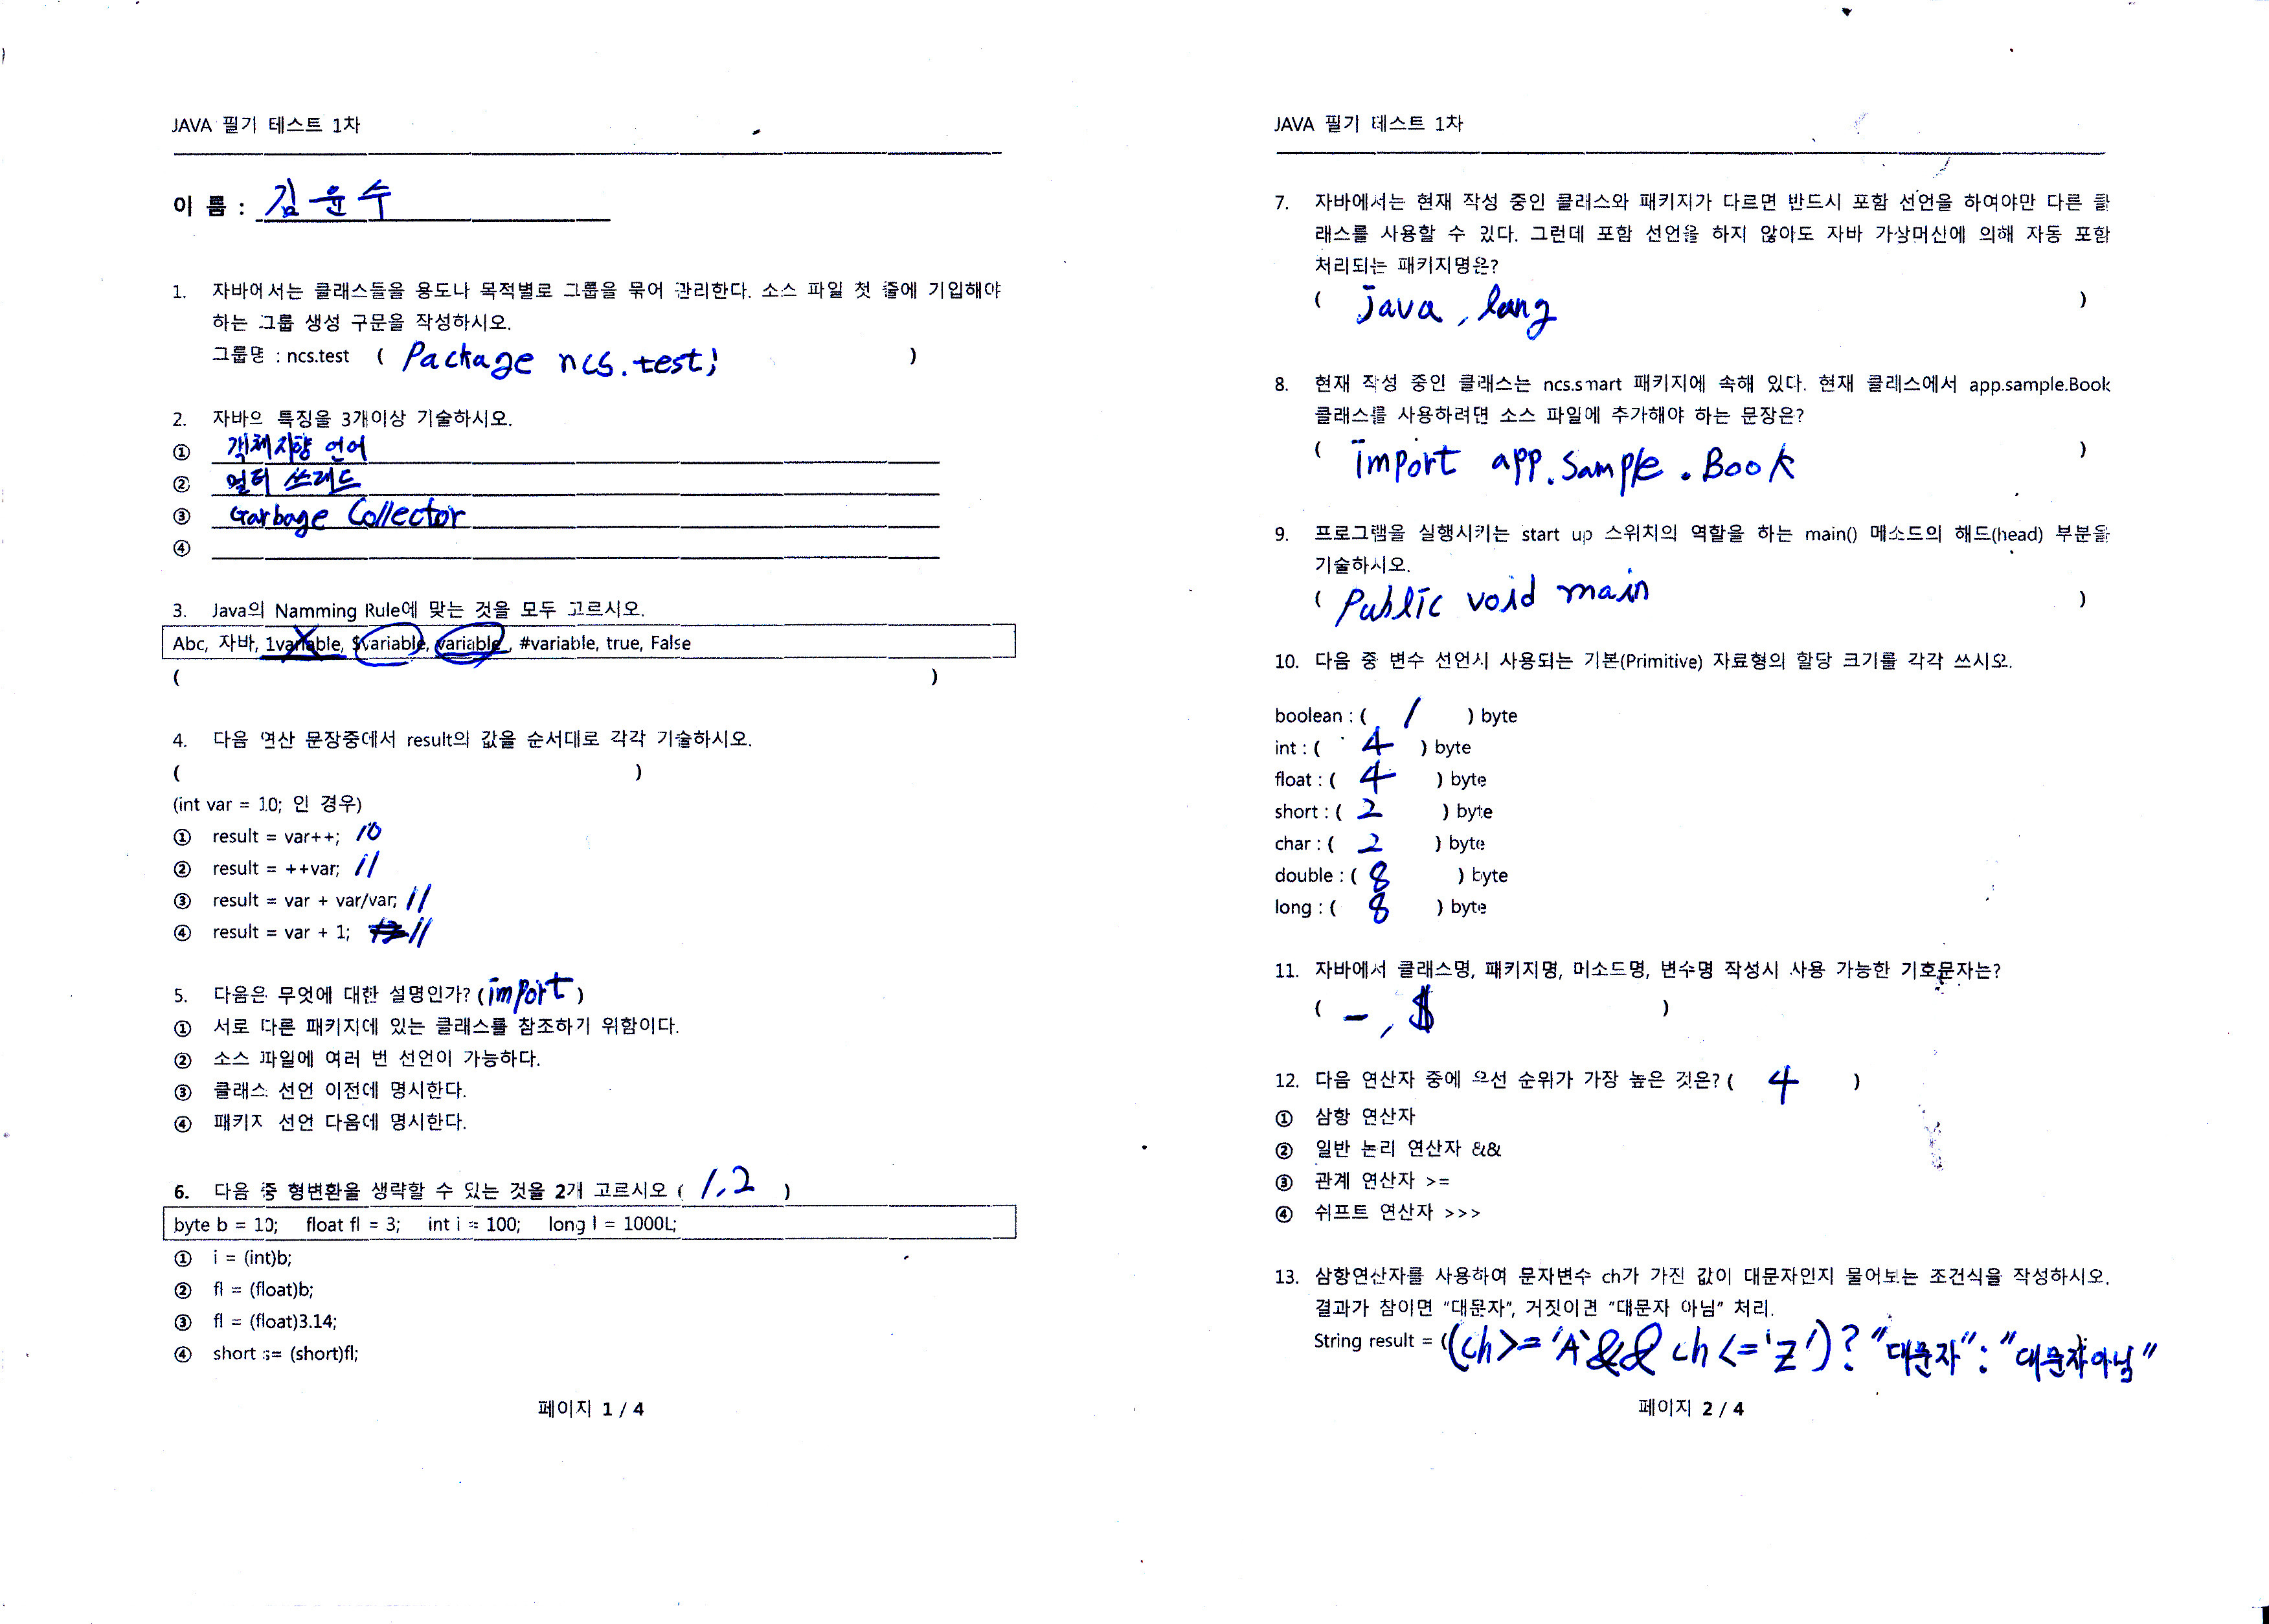 JAVA 필기 테스트 1차
이 름 : 김윤수
1. 자바에서는 클래스들을 용도나 목적별로 그룹을 묶어 관리한다. 소스 파일 첫 줄에 기입해야
하는 그룹 생성 구문을 작성하시오.
그룹명 : ncs.test ( Package ncs.test; )
2. 자바의 특징을 3개이상 기술하시오.
① 객체지향 언어
② 멀티 쓰레드
③ Garbage Collector
④
3. Java의 Namming Rule에 맞는 것을 모두 고르시오.
Abc, 자바, 1variable, $variable, variable_, #variable, true, False
( )
4. 다음 연산 문장중에서 result의 값을 순서대로 각각 기술하시오.
( )
(int var = 10; 인 경우)
① result = var++; 10
② result = ++var; 11
③ result = var + var/var; 11
④ result = var + 1; 11
5. 다음은 무엇에 대한 설명인가? (import)
① 서로 다른 패키지에 있는 클래스를 참조하기 위함이다.
② 소스 파일에 여러 번 선언이 가능하다.
③ 클래스 선언 이전에 명시한다.
④ 패키지 선언 다음에 명시한다.
6. 다음 중 형변환을 생략할 수 있는 것을 2개 고르시오 ( 1, 2 )
byte b = 10; float fl = 3; int i = 100; long l = 1000L;
① i = (int)b;
② fl = (float)b;
③ fl = (float)3.14;
④ short s= (short)fl;
페이지 1 / 4
JAVA 필기 테스트 1차
7. 자바에서는 현재 작성 중인 클래스와 패키지가 다르면 반드시 포함 선언을 하여야만 다른 클
래스를 사용할 수 있다. 그런데 포함 선언을 하지 않아도 자바 가상머신에 의해 자동 포함
처리되는 패키지명은?
( java. lang )
8. 현재 작성 중인 클래스는 ncs.smart 패키지에 속해 있다. 현재 클래스에서 app.sample.Book
클래스를 사용하려면 소스 파일에 추가해야 하는 문장은?
( import app.sample.Book )
9. 프로그램을 실행시키는 start up 스위치의 역할을 하는 main() 메소드의 해드(head) 부분을
기술하시오.
( Public void main )
10. 다음 중 변수 선언시 사용되는 기본(Primitive) 자료형의 할당 크기를 각각 쓰시오.
boolean : ( 1 ) byte
int : ( 4 ) byte
float : ( 4 ) byte
short : ( 2 ) byte
char : ( 2 ) byte
double : ( 8 ) byte
long : ( 8 ) byte
11. 자바에서 클래스명, 패키지명, 메소드명, 변수명 작성시 사용 가능한 기호문자는?
( _, $ )
12. 다음 연산자 중에 우선 순위가 가장 높은 것은? ( 4 )
① 삼항 연산자
② 일반 논리 연산자 &&
③ 관계 연산자 >=
④ 쉬프트 연산자 >>>
13. 삼항연산자를 사용하여 문자변수 ch가 가진 값이 대문자인지 물어보는 조건식을 작성하시오.
결과가 참이면 "대문자", 거짓이면 "대문자 아님" 처리.
String result = ((ch>='A'&& ch<='Z')? "대문자": "대문자아님"
페이지 2 / 4